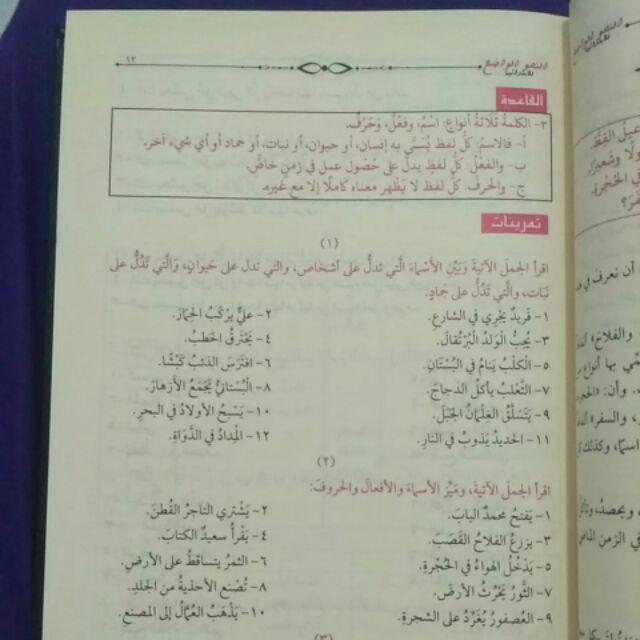 النحو الواضح
١٢
القاعدة
٣- الكلمة ثلاثة أنواع: اسْمٌ، وفِعْلٌ، وحَرْفٌ.
أ- فالاسم: كلُّ لفظ يُسَمَّى به إنسان، أو حيوان، أو نبات، أو جماد أو أي شيء آخر.
ب- والفعل: كلُّ لفظٍ يدلُّ على حُصُول عمل في زمنٍ خاصٍّ.
ج- والحرف: كلُّ لفظ لا يَظْهر معناه كاملًا إلا مع غيره.
تمرينات
(١)
اقرأ الجمل الآتية وبَيِّن الأسماء الَّتي تدلُّ على أشخاص، والتي تدل على حيوان، وَالَّتي تَدُلُّ على
نَبات، والَّتي تَدُلُّ على جَمادٍ:
١- فَريدٌ يجْري في الشارعِ.
٢- عليٌّ يَرْكَبُ الحِمارَ.
٣- يُحِبُّ الوَلَدُ البُرْتُقالَ.
٤- يَحْتَرِقُ الحَطَبُ.
٥- الْكَلْبُ يَنامُ في الْبُسْتَانِ.
٦- افْتَرَسَ الذئبُ كَبْشًا.
٧- الثَّعْلبُ يأكُلُ الدجاجَ.
٨- الْبُسْتانيُّ يَجْمَعُ الأَزهارَ.
٩- يَتَسَلَّقُ الغِلْمانُ الجَبَلَ.
١٠- يَسْبَحُ الأولادُ في البَحرِ.
١١- الحديدُ يَذوبُ في النارِ.
١٢- المِدادُ في الدَّوَاةِ.
(٢)
اقرأ الجمل الآتية، ومَيِّز الأسماء والأفعال والحروف:
١- يَفتحُ محمدٌ البابَ.
٢- يَشْتَرِي التاجرُ القُطنَ.
٣- يزرعُ الفلاحُ القَصَبَ.
٤- يَقْرأُ سعيدٌ الكتابَ.
٥- يَدْخُلُ الهواءُ في الْحُجْرةِ.
٦- الثمرُ يتساقطُ على الأَرضِ.
٧- الثَّورُ يَحْرُثُ الأرضَ.
٨- تُصْنع الأَحذيةُ من الجِلدِ.
٩- العُصفورُ يُغَرِّدُ على الشجرةِ.
١٠- يَذْهَبُ العُمَّالُ إلى المصنَعِ.
(٣)